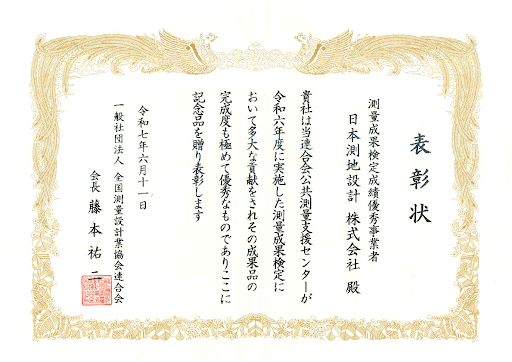 表彰状
測量成果検定成績優秀事業者
日本測地設計 株式会社 殿
貴社は当連合会公共測量支援センターが
令和六年度に実施した測量成果検定に
おいて多大な貢献をされその成果品の
完成度も極めて優秀なものでありここに
記念品を贈り表彰します
令和七年六月十一日
一般社団法人 全国測量設計業協会連合会
会長 藤本祐二